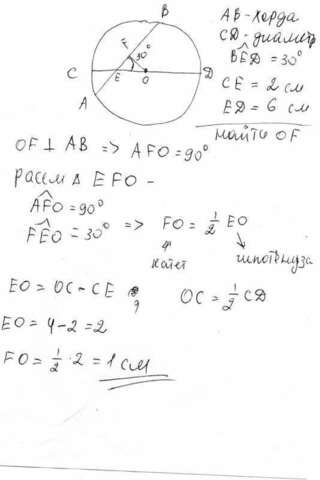 B
F
30°
C
E
O
D
A
AB - хорда
CD - диаметр
BED = 30°
CE = 2 см
ED = 6 см
Найти OF
OF ⊥ AB => AFO = 90°
Рассм Δ EFO -
AFO = 90°
FEO = 30° => FO = 1/2 EO
катет гипотенуза
EO = OC - CE , OC = 1/2 CD
EO = 4 - 2 = 2
FO = 1/2 · 2 = 1 см